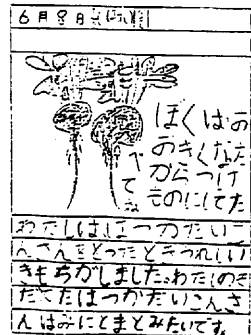 6月8日
ぼくはお
おきくなた
からつけ
ものにしてた
べてね
わたしははつかだいこ
んさんをとったときうれしい
きもちがしました。わたしのそ
だてたはつかだいこんさ
んはみにとまとみたいです。